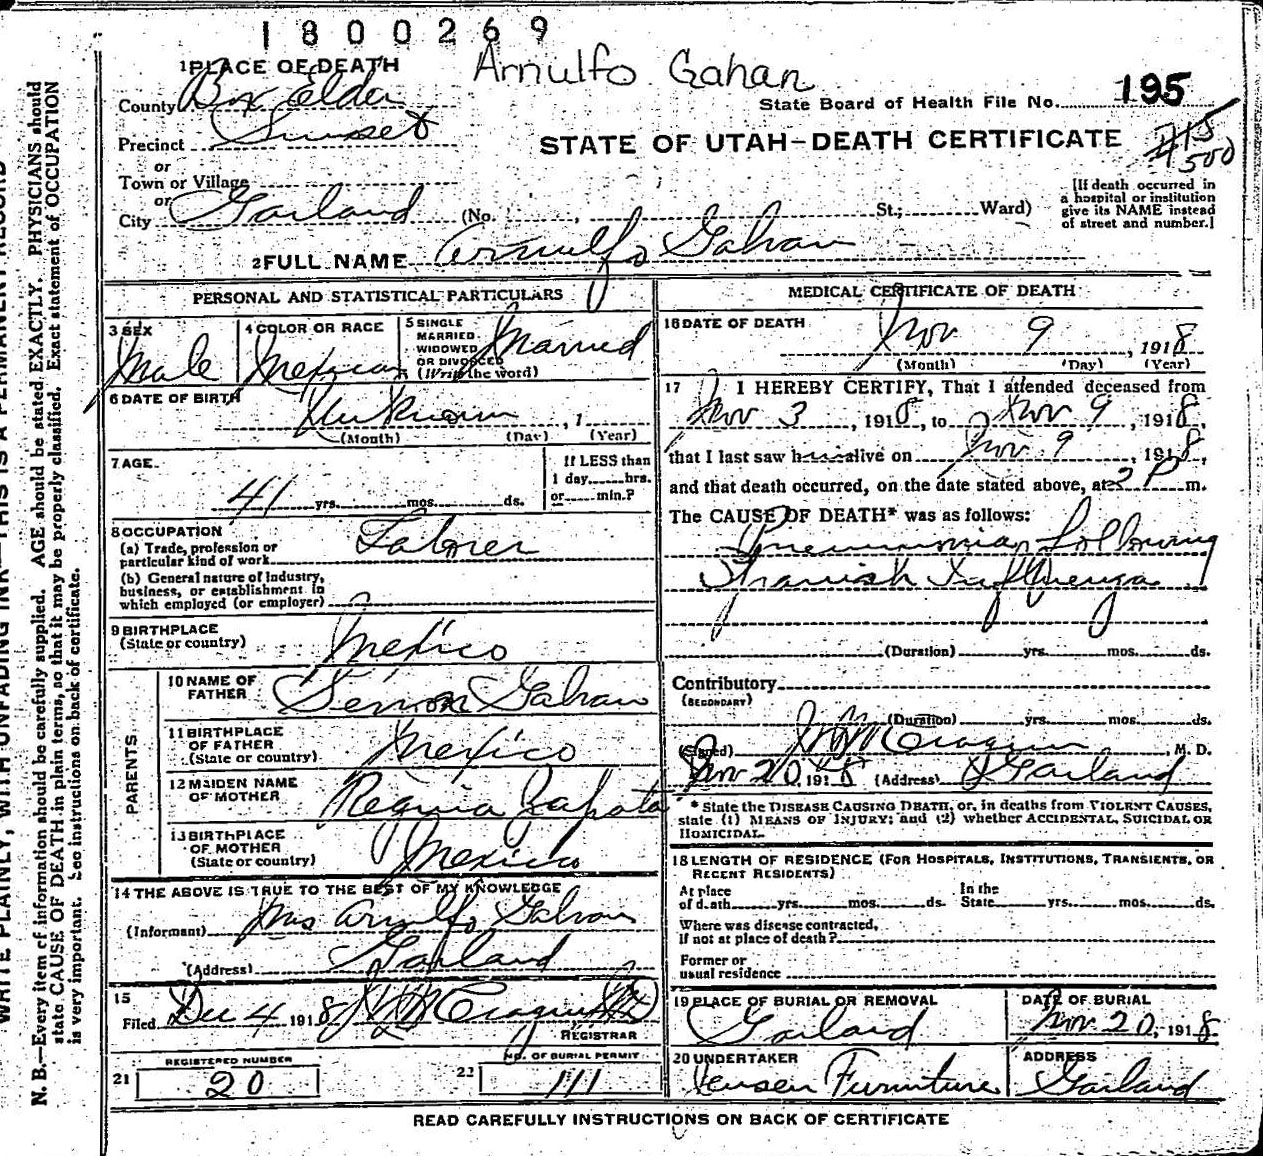 1800269
Arnulfo Gahan
1 PLACE OF DEATH
County Box Elder
State Board of Health File No. 195
Precinct Sunset
STATE OF UTAH—DEATH CERTIFICATE
#15
500
or
Town or Village
or
City Garland (No. , St.; Ward)
[If death occurred in
a hospital or institution
give its NAME instead
of street and number.]
2 FULL NAME Arnulfo Gahan
PERSONAL AND STATISTICAL PARTICULARS
3 SEX
Male
4 COLOR OR RACE
Mexican
5 SINGLE
MARRIED
WIDOWED
OR DIVORCED
(Write the word)
Married
6 DATE OF BIRTH
Unknown , 1
(Month) (Day) (Year)
7 AGE
41 yrs. mos. ds.
If LESS than
1 day hrs.
or min.?
8 OCCUPATION
(a) Trade, profession or
particular kind of work Labrer
(b) General nature of Industry,
business, or establishment in
which employed (or employer)
9 BIRTHPLACE
(State or country)
Mexico
PARENTS
10 NAME OF
FATHER
Gahan
11 BIRTHPLACE
OF FATHER
(State or country)
Mexico
12 MAIDEN NAME
OF MOTHER
Regina Zapota
13 BIRTHPLACE
OF MOTHER
(State or country)
Mexico
14 THE ABOVE IS TRUE TO THE BEST OF MY KNOWLEDGE
(Informant) Mrs Arnulfo Gahan
(Address) Garland
15
Filed Dec 4 1918
REGISTRAR
REGISTERED NUMBER
21 20
NO. OF BURIAL PERMIT
22 111
MEDICAL CERTIFICATE OF DEATH
16 DATE OF DEATH
Nov 9 , 1918
(Month) (Day) (Year)
17 I HEREBY CERTIFY, That I attended deceased from
Nov 3 , 1918, to Nov 9 , 1918,
that I last saw him alive on Nov 9 , 1918,
and that death occurred, on the date stated above, at 2 P m.
The CAUSE OF DEATH* was as follows:
Pneumonia, following
Spanish Influenza
(Duration) yrs. mos. ds.
Contributory
(SECONDARY)
(Duration) yrs. mos. ds.
(Signed) , M. D.
Nov 20 1918 (Address) Garland
* State the DISEASE CAUSING DEATH, or, in deaths from VIOLENT CAUSES,
state (1) MEANS OF INJURY; and (2) whether ACCIDENTAL, SUICIDAL OR
HOMICIDAL.
18 LENGTH OF RESIDENCE (FOR HOSPITALS, INSTITUTIONS, TRANSIENTS, OR
RECENT RESIDENTS)
At place
of death yrs. mos. ds.
In the
State yrs. mos. ds.
Where was disease contracted,
if not at place of death?
Former or
usual residence
19 PLACE OF BURIAL OR REMOVAL
Garland
DATE OF BURIAL
Nov 20, 1918
20 UNDERTAKER
Jensen Furniture
ADDRESS
Garland
READ CAREFULLY INSTRUCTIONS ON BACK OF CERTIFICATE
WRITE PLAINLY, WITH UNFADING INK—THIS IS A PERMANENT RECORD
N. B.—Every item of information should be carefully supplied. AGE should be stated EXACTLY. PHYSICIANS should
state CAUSE OF DEATH in plain terms, so that it may be properly classified. Exact statement of OCCUPATION
is very important. See instructions on back of certificate.